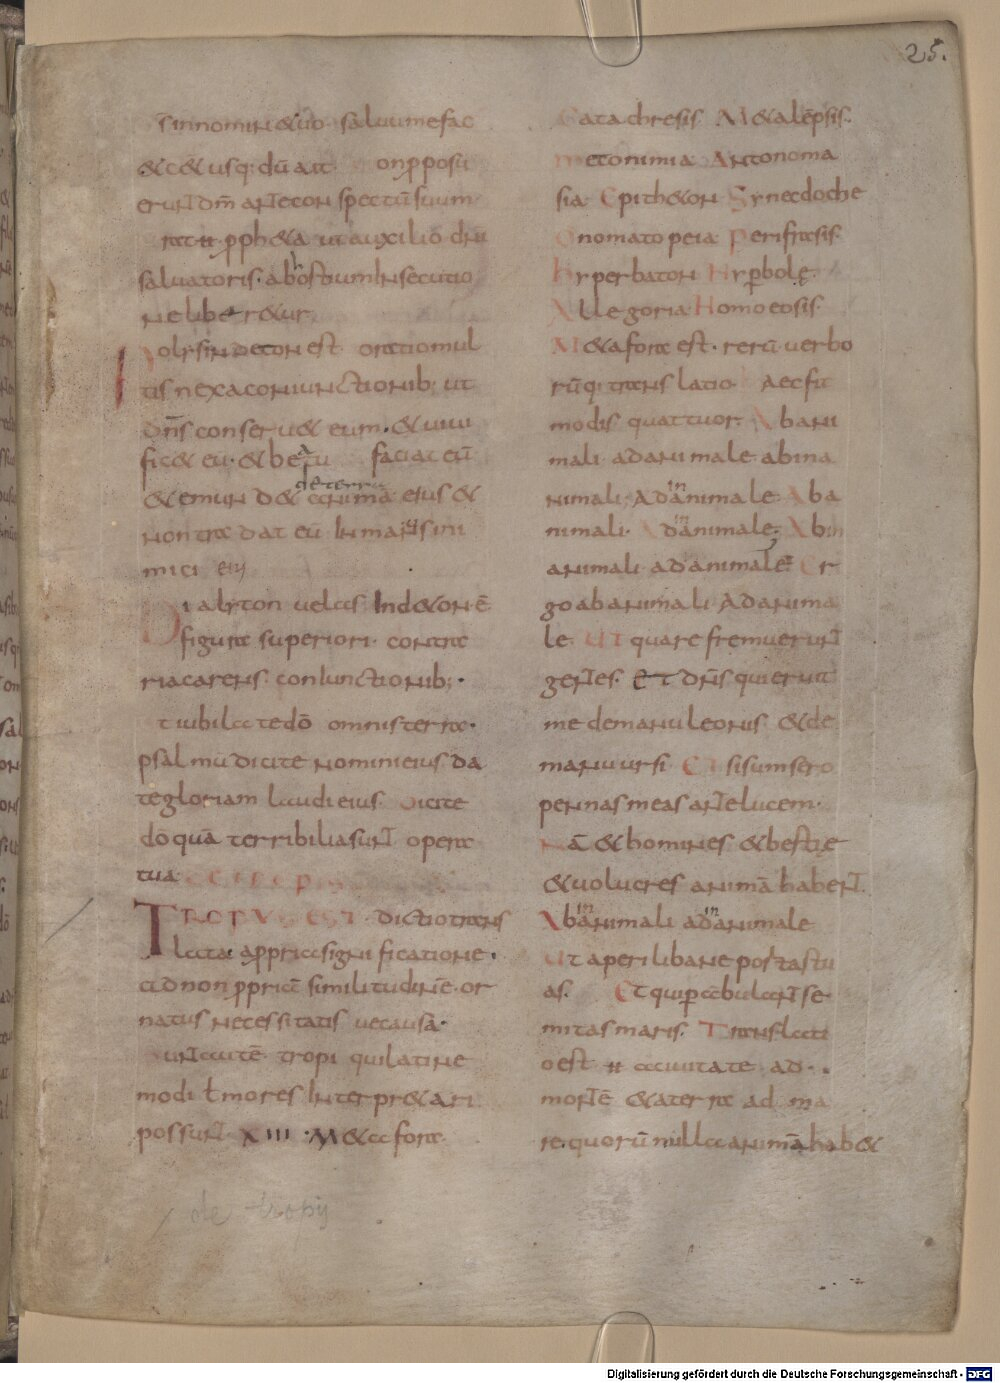 25.
Ds innomine tuo saluum me fac
& c& usq: dū ait Non pposu
erunt dm̄ ante conspectū suum
prophe&a ut auxilio dn̄i
saluatoris ab hostium insecutio
ne liber&ur
Polysindeton est oratio mul
tis nexa coniunctionib; ut
dn̄s conseru& eum & uiui
fic& eū & beatū faciat eū
in terra
& emund& animā eius &
non tradat eū in manus ini
mici eius
Dialyton uel asindeton ē
figura superiori contra
ria carens coniunctionib;
Iubilate dō omnis terra
psalmū dicite nomini eius da
te gloriam laudi eius Dicite
dō quā terribilia sunt opera
tua
TROPUS EST dictio trans
lata a ppria significatione
ad non ppriā similitudinē or
natus necessitatis ue causā
Sunt autē tropi qui latine
modi t mores interpr&ari
possunt XIII M&afora
de tropis
Catachresis M&alēpsis
Metonimia Antonoma
sia Epith&on Synecdoche
Onomatopeia Perifrasis
Hyperbaton Hyperbolę
Allegoria Homoeosis
M&afora est rerū uerbo
rūq: translatio Haec fit
modis quattuor Ab ani
mali ad animale ab ina
nimali Ad inanimale Ab a
nimali Ad inanimale Ab in
animali ad animale Er
go ab animali Ad anima
le UT quare fremuerunt
gentes ET dn̄s qui eruit
me de manu leonis & de
manu ursi ET si sumsero
pennas meas ante lucem
Nā & homines & bestię
& uolucres animā habent
Ab inanimali ad inanimale
UT aperi libane portas tu
as Et qui pambulant se
mitas maris Translati
o est a ciuitate ad
montē & a terra ad ma
re quorū nulla animā hab&
Digitalisierung gefördert durch die Deutsche Forschungsgemeinschaft - DFG